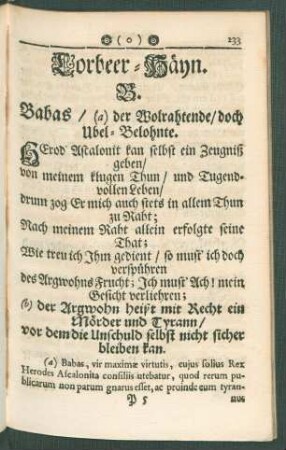 (o) 233
Lorbeer-Häyn.
B.
Babas / (a) der Wolrahtende/ doch
Ubel-Belohnte.
HErod Aſtalonit kan ſelbſt ein Zeugniß
geben/
von meinem klugen Thun/ und Tugend-
vollen Leben/
drum zog Er mich auch ſtets in allem Thun
zu Raht;
Nach meinem Raht allein erfolgte ſeine
That;
Wie treu ich Ihm gedient / ſo muſt' ich doch
verſpühren
des Argwohns Frucht; Ich muſt' Ach! mein
Geſicht verliehren;
(b) der Argwohn heiſt mit Recht ein
Mörder und Tyrann/
vor dem die Unſchuld ſelbſt nicht ſicher
bleiben kan.
(a) Babas, vir maximæ virtutis, cujus ſolius Rex
Herodes Aſcalonita conſiliis utebatur, quod rerum pu-
blicarum non parum gnarus eſſet, ac proinde eum tyran-
P 5 nus